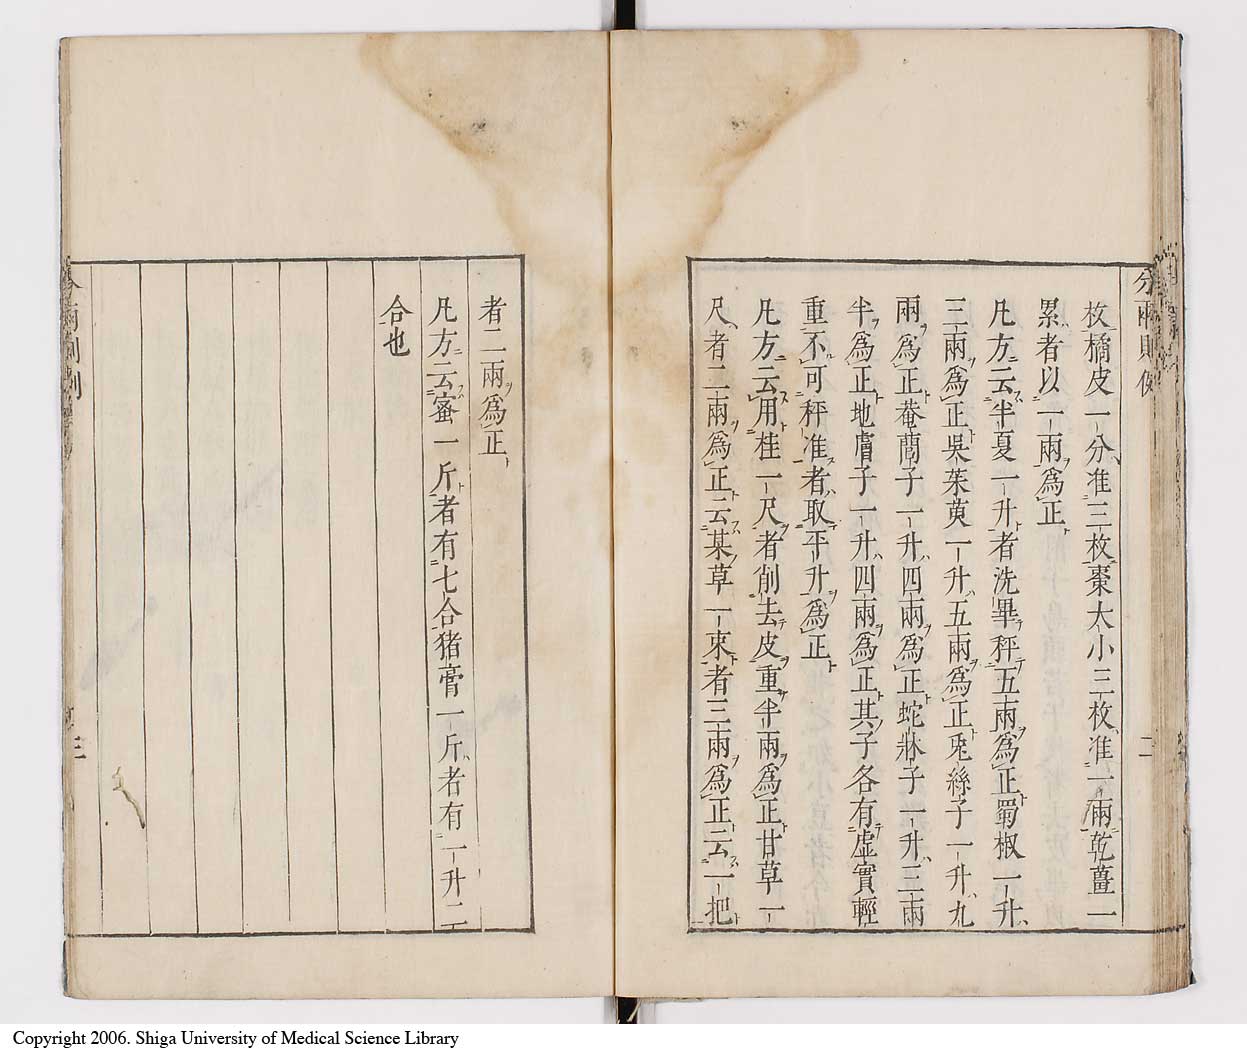 枚橘皮一分准三枚棗大小三枚准一兩乾薑一
累者以一兩爲正
凡方云半夏一升者洗畢秤五兩爲正蜀椒一升
三兩爲正吳茱萸一升五兩爲正兎絲子一升九
兩爲正菴䕡子一升四兩爲正蛇牀子一升三兩
半爲正地膚子一升四兩爲正其子各有虛實輕
重不可秤准者取平升爲正
凡方云用桂一尺者削去皮重半兩爲正甘草一
尺者二兩爲正云某草一束者三兩爲正云一把
者二兩爲正
凡方云蜜一斤者有七合猪膏一斤者有一升二
合也
分兩
二
三
Copyright 2006. Shiga University of Medical Science Library